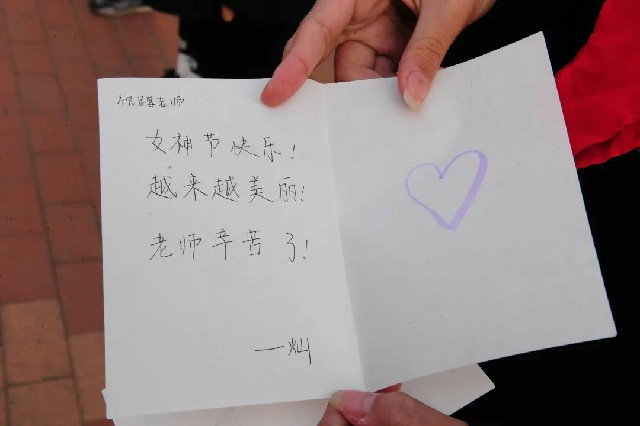 老师
女神节快乐!
越来越美丽!
老师辛苦了!
一灿